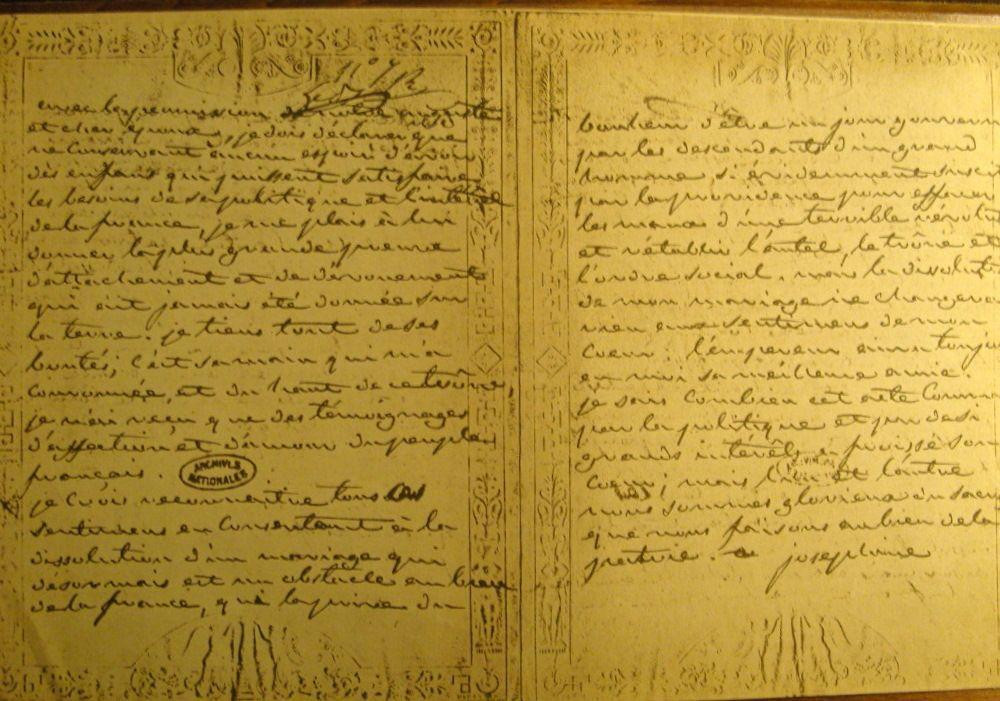 avec la permission de notre auguste
et cher epoux, je dois declarer que
ne conservant aucun espoir d'avoir
des enfans qui puissent satisfaire
les besoins de sa politique et l'interêt
de la france, je me plais à lui
donner la plus grande preuve
d'attachement et de devouement
qui ait jamais été donnée sur
la terre. je tiens tout de ses
bontés; c'est sa main qui m'a
couronnée, et du haut de ce trône,
je n'ai reçu que des témoignages
d'affection et d'amour du peuple
français.
ARCHIVES
NATIONALES
je crois reconnaitre tous ces
sentimens en consentant à la
dissolution d'un mariage qui
désormais est un obstacle au bien
de la france, qui la prive du
bonheur d'être un jour gouvern
par les descendants d'un grand
homme si évidemment suscit
par la providence pour effacer
les maux d'une terrible révolu
et rétablir l'autel, le trône et
l'ordre social. mais la dissolut
de mon mariage ne changera
rien aux sentimens de mon
coeur. l'empereur aura toujou
en moi sa meilleure amie.
je sais combien cet acte comm
par la politique et par de si
grands intérêts a froissé son
coeur; mais l'un et l'autre
nous sommes glorieux du sacri
que nous faisons au bien de la
patrie. josephine